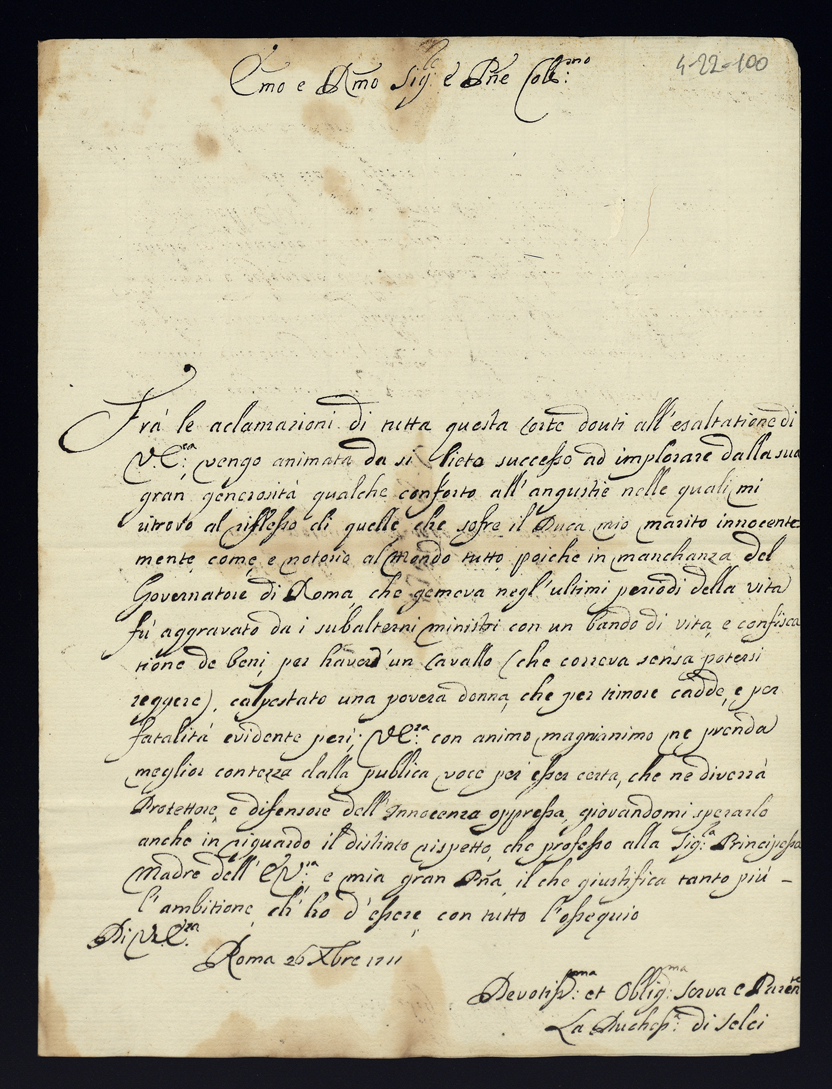 4-22-100
Emo e Rmo Sig.re e Pne Coll:mo
Frà le aclamazioni di tutta questa Corte douti all'esaltatione di
VE:za, vengo animata da si lieto successo ad implorare dalla sua
gran generosità qualche conforto all'angustie nelle quali mi
ritrovo al riflesso di quelle, che sofre il Duca mio marito innocente
mente, come, e notorio al Mondo tutto, poiche in manchanza del
Governatore di Roma, che gemeva negl'ultimi periodi della vita
fù aggravato da i subalterni ministri con un bando di vita, e confisca
tione de beni, per haver d'un Cavallo (che correva senza potersi
reggere), calpestato una povera donna, che per timore cadde, e per
fatalità evidente perì; VE:za con animo magnanimo ne prenda
meglior contezza dalla publica voce per esser certa, che ne diverrà
Protettore, e difensore dell'Innocenza oppressa, giovandomi sperarlo
anche in riguardo il distinto rispetto, che professo alla Sig:a Principessa
Madre dell'EV:za, e mia gran Pña, il che giustifica tanto più –
l'ambitione, ch'hò d'essere con tutto l'ossequio
Di VE:za
Roma 26 Xbre 1711
Devotiss:ma et Oblig:ma Serva e Paren:te
La Duchess:a di Selci